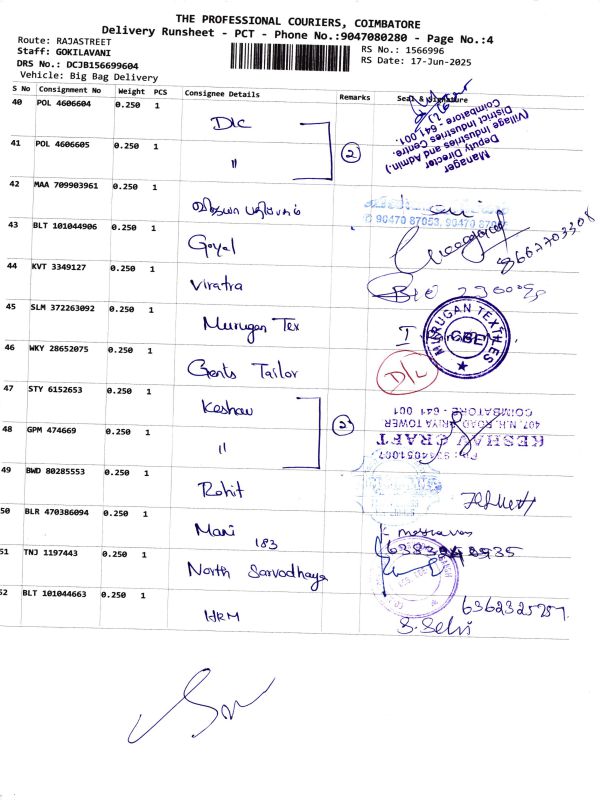 THE PROFESSIONAL COURIERS, COIMBATORE
Delivery Runsheet - PCT - Phone No.:9047080280 - Page No.:4
Route: RAJASTREET
RS No.: 1566996
Staff: GOKILAVANI
RS Date: 17-Jun-2025
DRS No.: DCJB156699604
Vehicle: Big Bag Delivery
S No Consignment No Weight PCS Consignee Details Remarks Seal & Signature
40 POL 4606604 0.250 1 DIC
Manager
Deputy Director
(Village Industries and Admin.)
District Industries Centre.
Coimbatore - 641 001.
41 POL 4606605 0.250 1 "
2
42 MAA 709903961 0.250 1
90470 87053, 90470
43 BLT 101044906 0.250 1 Goyal
8667703308
44 KVT 3349127 0.250 1 Viratra
45 SLM 372263092 0.250 1 Murugan Tex
MURUGAN TEXTILES
CBE
46 WKY 28652075 0.250 1 Gents Tailor
D/L
47 STY 6152653 0.250 1 Keshav
48 GPM 474669 0.250 1 "
2
KESHAV CRAFT
407, N.H. ROAD, ARIYA TOWER
COIMBATORE - 641 001
49 BWD 80285553 0.250 1 Rohit
50 BLR 470386094 0.250 1 Mani
183
51 TNJ 1197443 0.250 1 North Sarvodhaya
52 BLT 101044663 0.250 1 HRM
6362325257.
S. Selvi